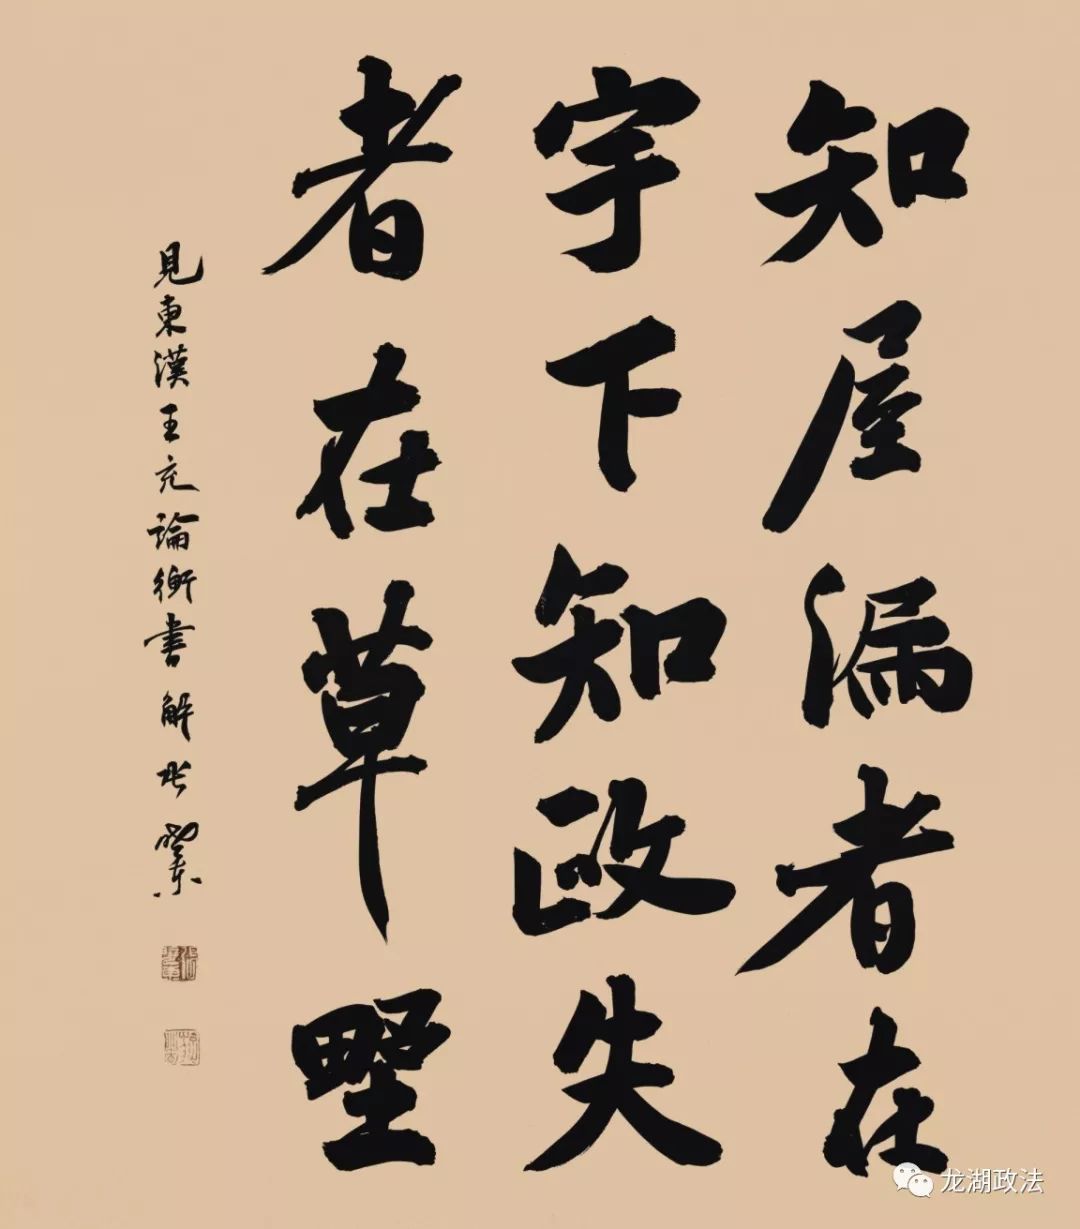 知屋漏者在
宇下知政失
者在草野
見東漢王充論衡書解
龙湖政法